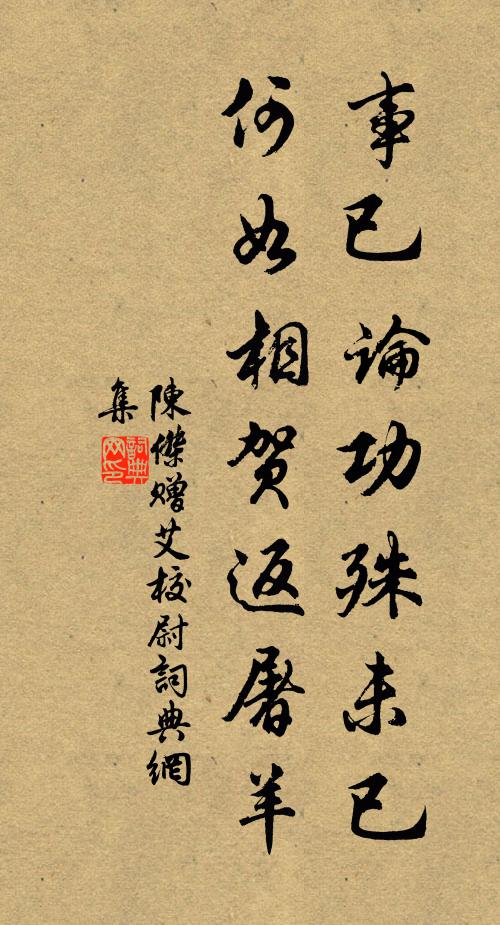 事已論功殊未已
何如相贺返屠羊
陳傑贈艾校尉詞典網
集
詞典
网印